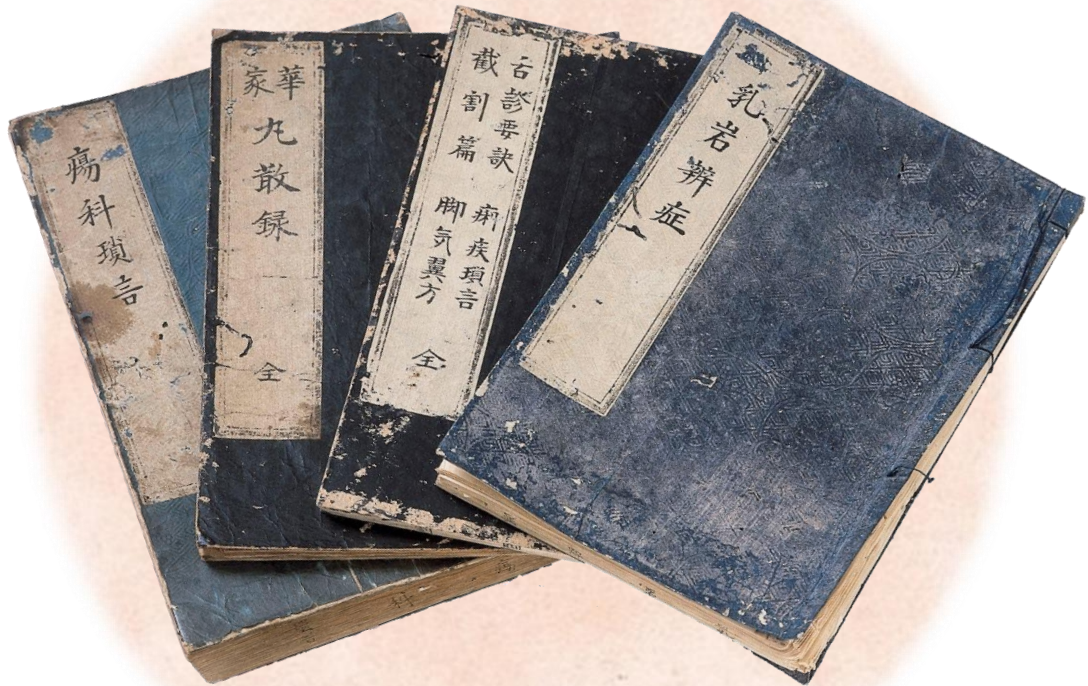 瘍科瑣言
華
家
丸散録
全
舌診要訣
截割篇
痢疾瑣言
脚気翼方
全
乳岩辨症
科